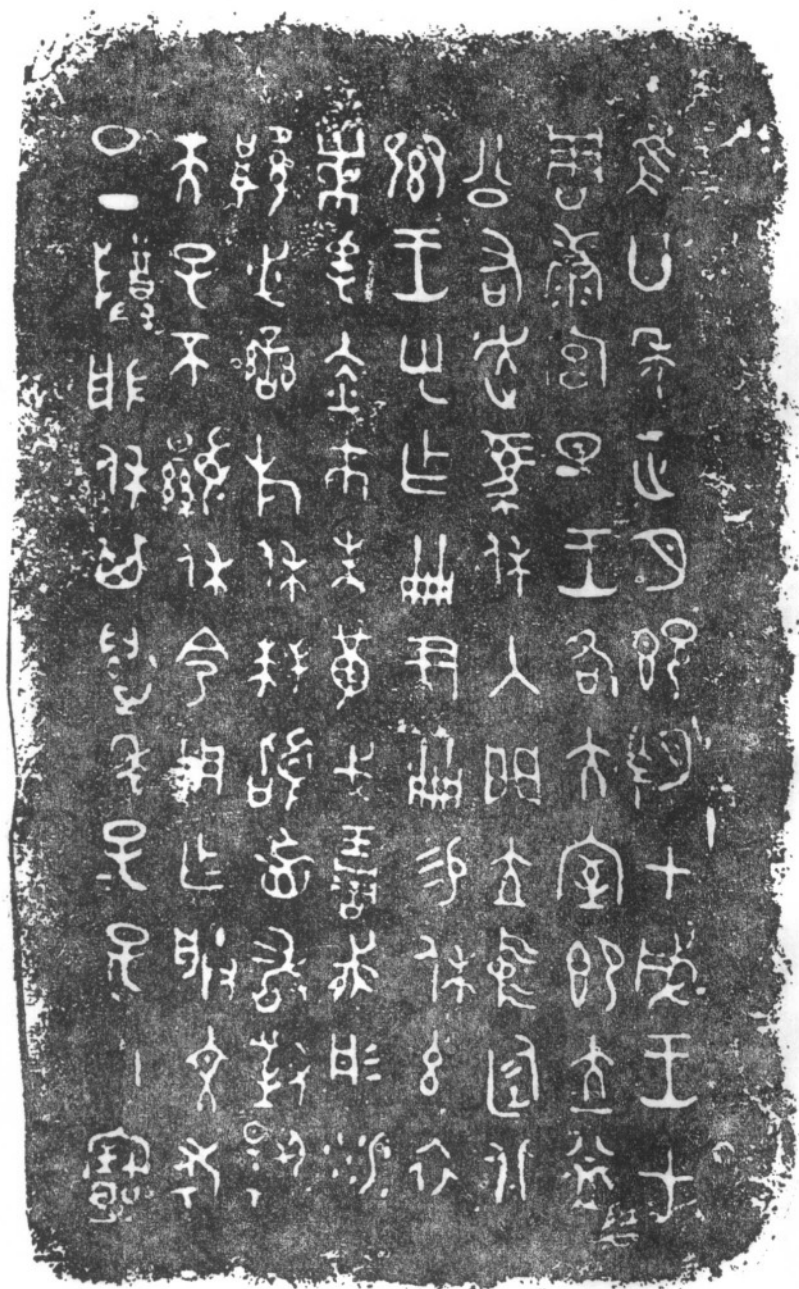 隹廿年正月既望甲戌王才
周康宮旦王各大室即立益
公右走馬休入門立中廷北
鄉王乎乍冊尹冊易休玄衣
黹屯赤巿朱黃戈琱胾彤沙
厚必䜌旂休拜稽首敢對揚
天子不顯休令用乍朕文考
日丁尊般休其萬年子子孫孫永寶